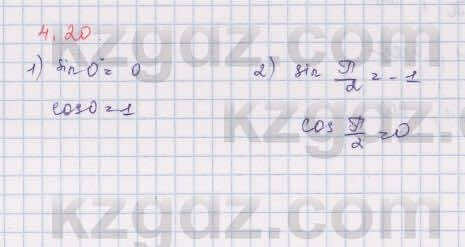 4.20.
1) sin 0° = 0
cos 0 = 1
2) sin π/2 = - 1
cos π/2 = 0
kzgdz.com
kzgdz.com
kzgdz.com